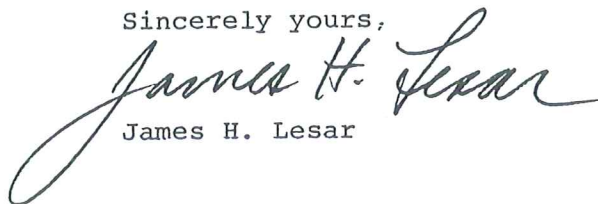 Sincerely yours,
James H. Lesar
James H. Lesar